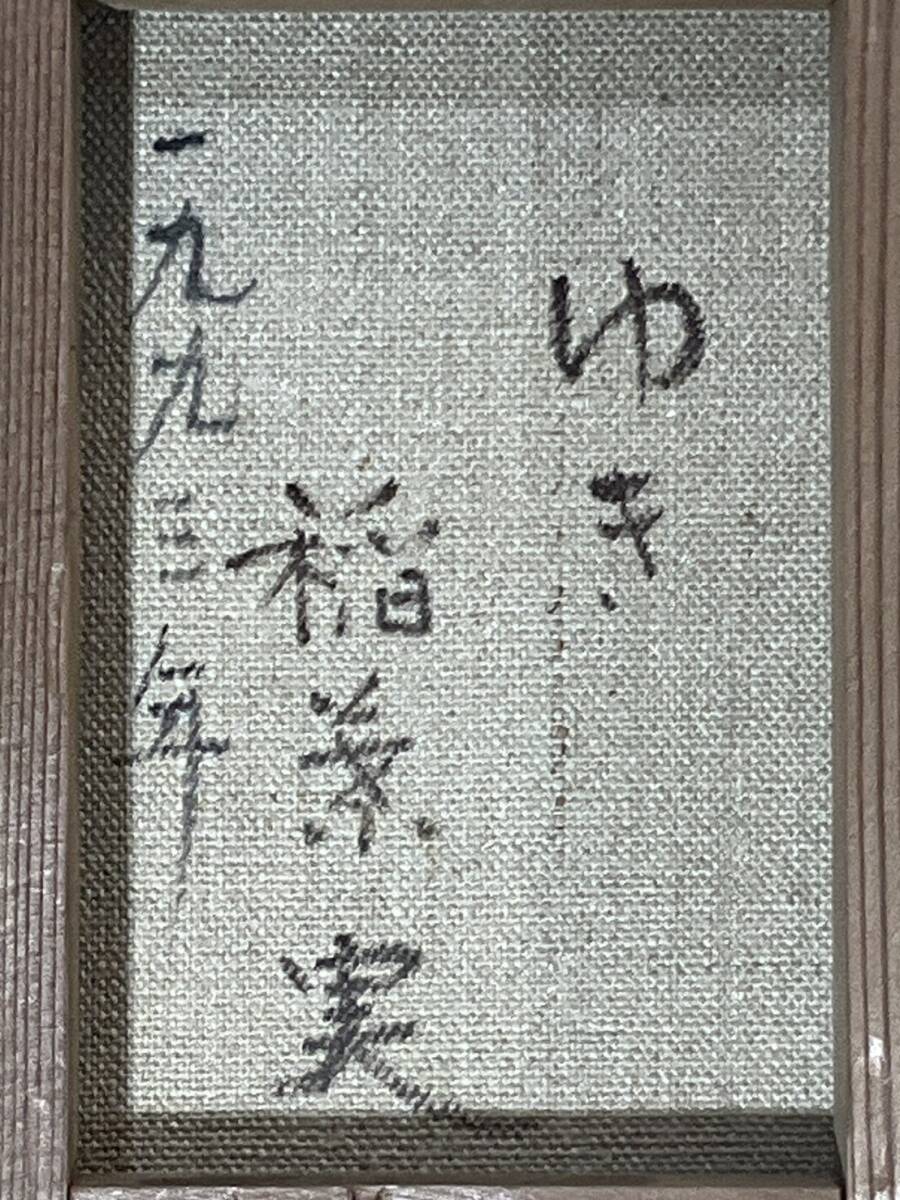 ゆき
稲葉 実
一九九三年